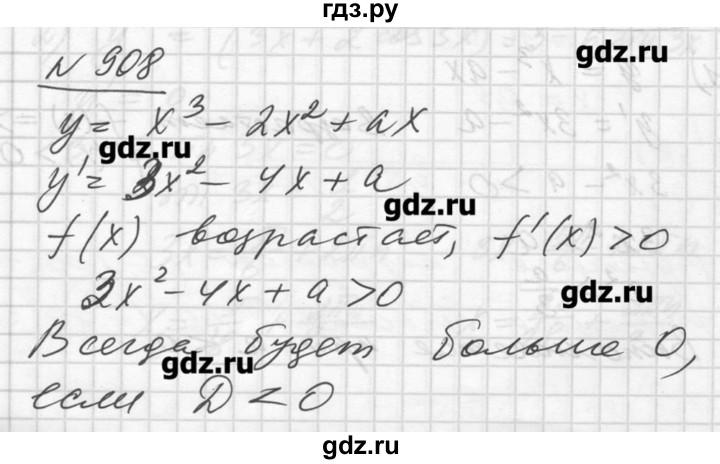 гдз.ру
gdz.ru
N 908
y = x³ - 2x² + ax
gdz.ru
y' = 3x² - 4x + a
gdz.ru
f(x) возрастает, f'(x) > 0
3x² - 4x + a > 0
gdz.ru
Всегда будет больше 0,
gdz.ru
если D < 0
gdz.ru